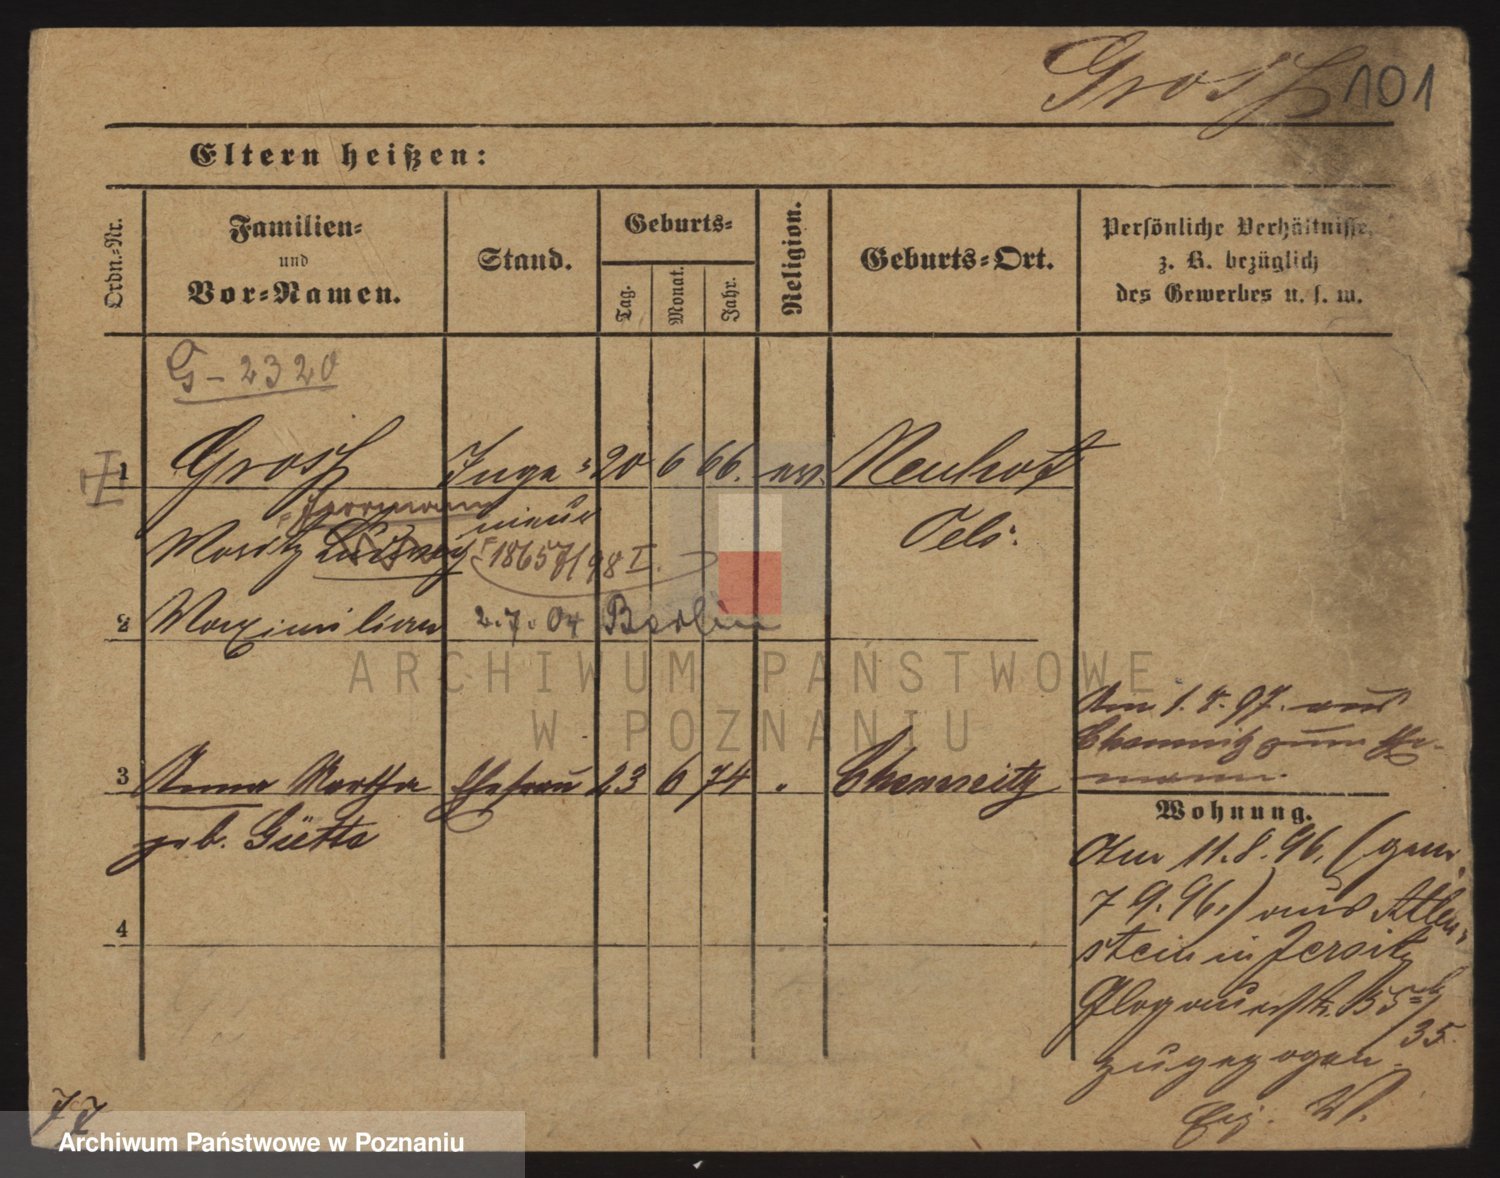 Grosz 101
Eltern heißen:
Ordn.-Nr.
Familien-
und
Vor-Namen.
Stand.
Geburts-
Tag.
Monat.
Jahr.
Religion.
Geburts-Ort.
Persönliche Verhältnisse,
z. B. bezüglich
des Gewerbes u. s. w.
G-2320
1 Grosz Inge= 20 6 66. ev. Neuhof
Herrmann nieur
Moritz Ludwig 18657/98 I. Oels.
2 Maximilian 2.7.04 Berlin
ARCHIWUM PAŃSTWOWE
W POZNANIU
Am 1.8.97. aus
Chemnitz zum Ehe-
mann.
3 Anna Martha Ehefrau 23 6 74 " Chemnitz
geb. Güttе
4
Wohnung.
Am 11.8.96. (gem.
7 9.96.) aus Allen-
stein in Jersitz
Glogauerstr.
35.
zugezogen.
Archiwum Państwowe w Poznaniu